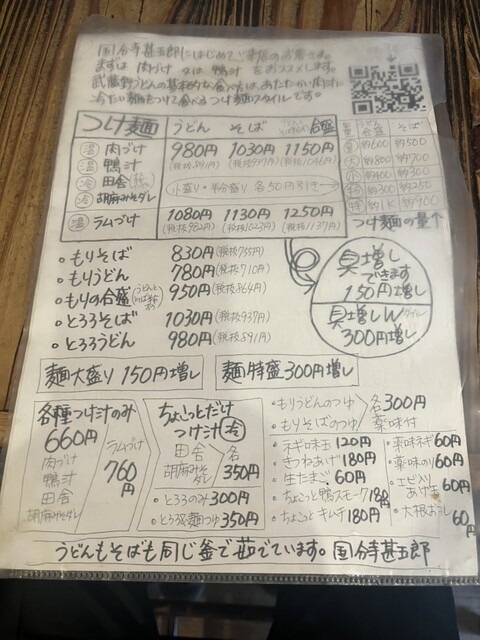 国分寺甚五郎にはじめてご来店のお客さま。
まずは 肉づけ 又は 鴨汁 をおススメします。
武蔵野うどんの基本的な食べ方は、あたたかい肉汁に
冷たい麺をつけて食べるつけ麺スタイルです。
つけ麺 うどん そば 合盛
温 肉づけ 980円 1030円 1150円
(税抜891円) (税抜937円) (税抜1046円)
温 鴨汁
冷 田舎
冷 胡麻みそダレ
小盛り・半分盛り 各50円引き
温 ラムづけ 1080円 1130円 1250円
(税抜982円) (税抜1023円) (税抜1137円)
量 うどん 合盛 そば
並 約600 約500
大 約800 約700
小 約400 約400
半 約300 約250
特 約1K 約900
つけ麺の量
具増し
できます
150円増し
具増しW
300円増し
・もりそば 830円(税抜755円)
・もりうどん 780円(税抜710円)
・もりの合盛 950円(税抜864円)
・とろろそば 1030円(税抜937円)
・とろろうどん 980円(税抜891円)
麺大盛り150円増し 麺特盛300円増し
各種つけ汁のみ
660円
肉づけ
鴨汁
田舎
胡麻みそダレ
ラムづけ
760円
ちょこっとだけ
つけ汁 冷
田舎
胡麻みそダレ
各
350円
・とろろのみ 300円
・とろろ麺つゆ 350円
・もりうどんのつゆ
・もりそばのつゆ
各300円
薬味付
・ネギ味玉 120円
・きつねあげ 180円
・生たまご 60円
・ちょこっと鴨スモーク 180円
・ちょこっとキムチ 180円
・薬味ネギ 60円
・薬味のり 60円
・エビ入りあげ玉 60円
・大根おろし 60円
うどんもそばも同じ釜で茹でています。国分寺甚五郎